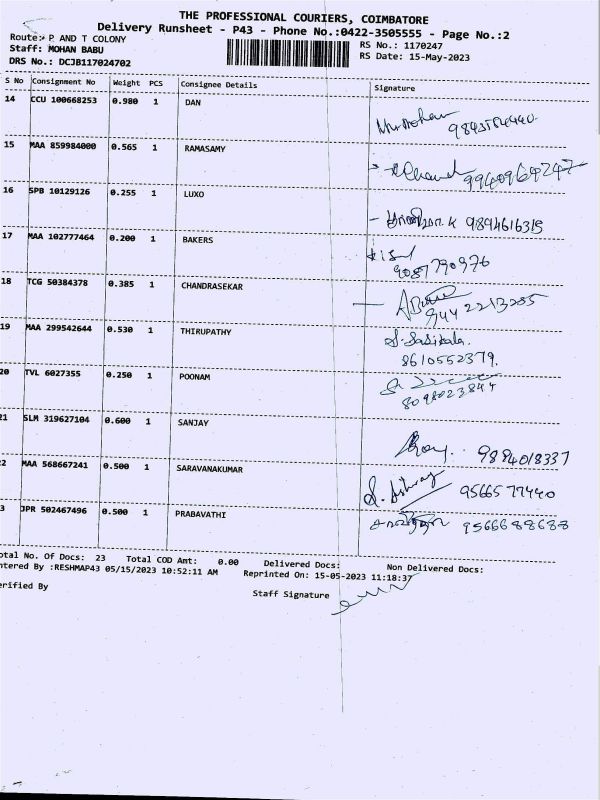 THE PROFESSIONAL COURIERS, COIMBATORE
Delivery Runsheet - P43 - Phone No.:0422-3505555 - Page No.:2
Route: P. AND T COLONY
Staff: MOHAN BABU
DRS No.: DCJB117024702
RS No.: 1170247
RS Date: 15-May-2023
S No Consignment No Weight PCS Consignee Details Signature
14 CCU 100668253 0.980 1 DAN
15 MAA 859984000 0.565 1 RAMASAMY
9940964247
16 SPB 10129126 0.255 1 LUXO
9894616319
17 MAA 102777464 0.200 1 BAKERS
9087790976
18 TCG 50384378 0.385 1 CHANDRASEKAR
9442213285
19 MAA 299542644 0.530 1 THIRUPATHY
S. Sasikala.
8610552379.
20 TVL 6027355 0.250 1 POONAM
8098023844
21 SLM 319627104 0.600 1 SANJAY
9884018337
22 MAA 568667241 0.500 1 SARAVANAKUMAR
9566577440
3 JPR 502467496 0.500 1 PRABAVATHI
9566688688
otal No. Of Docs: 23 Total COD Amt: 0.00 Delivered Docs: Non Delivered Docs:
ntered By :RESHMAP43 05/15/2023 10:52:11 AM Reprinted On: 15-05-2023 11:18:37
erified By Staff Signature